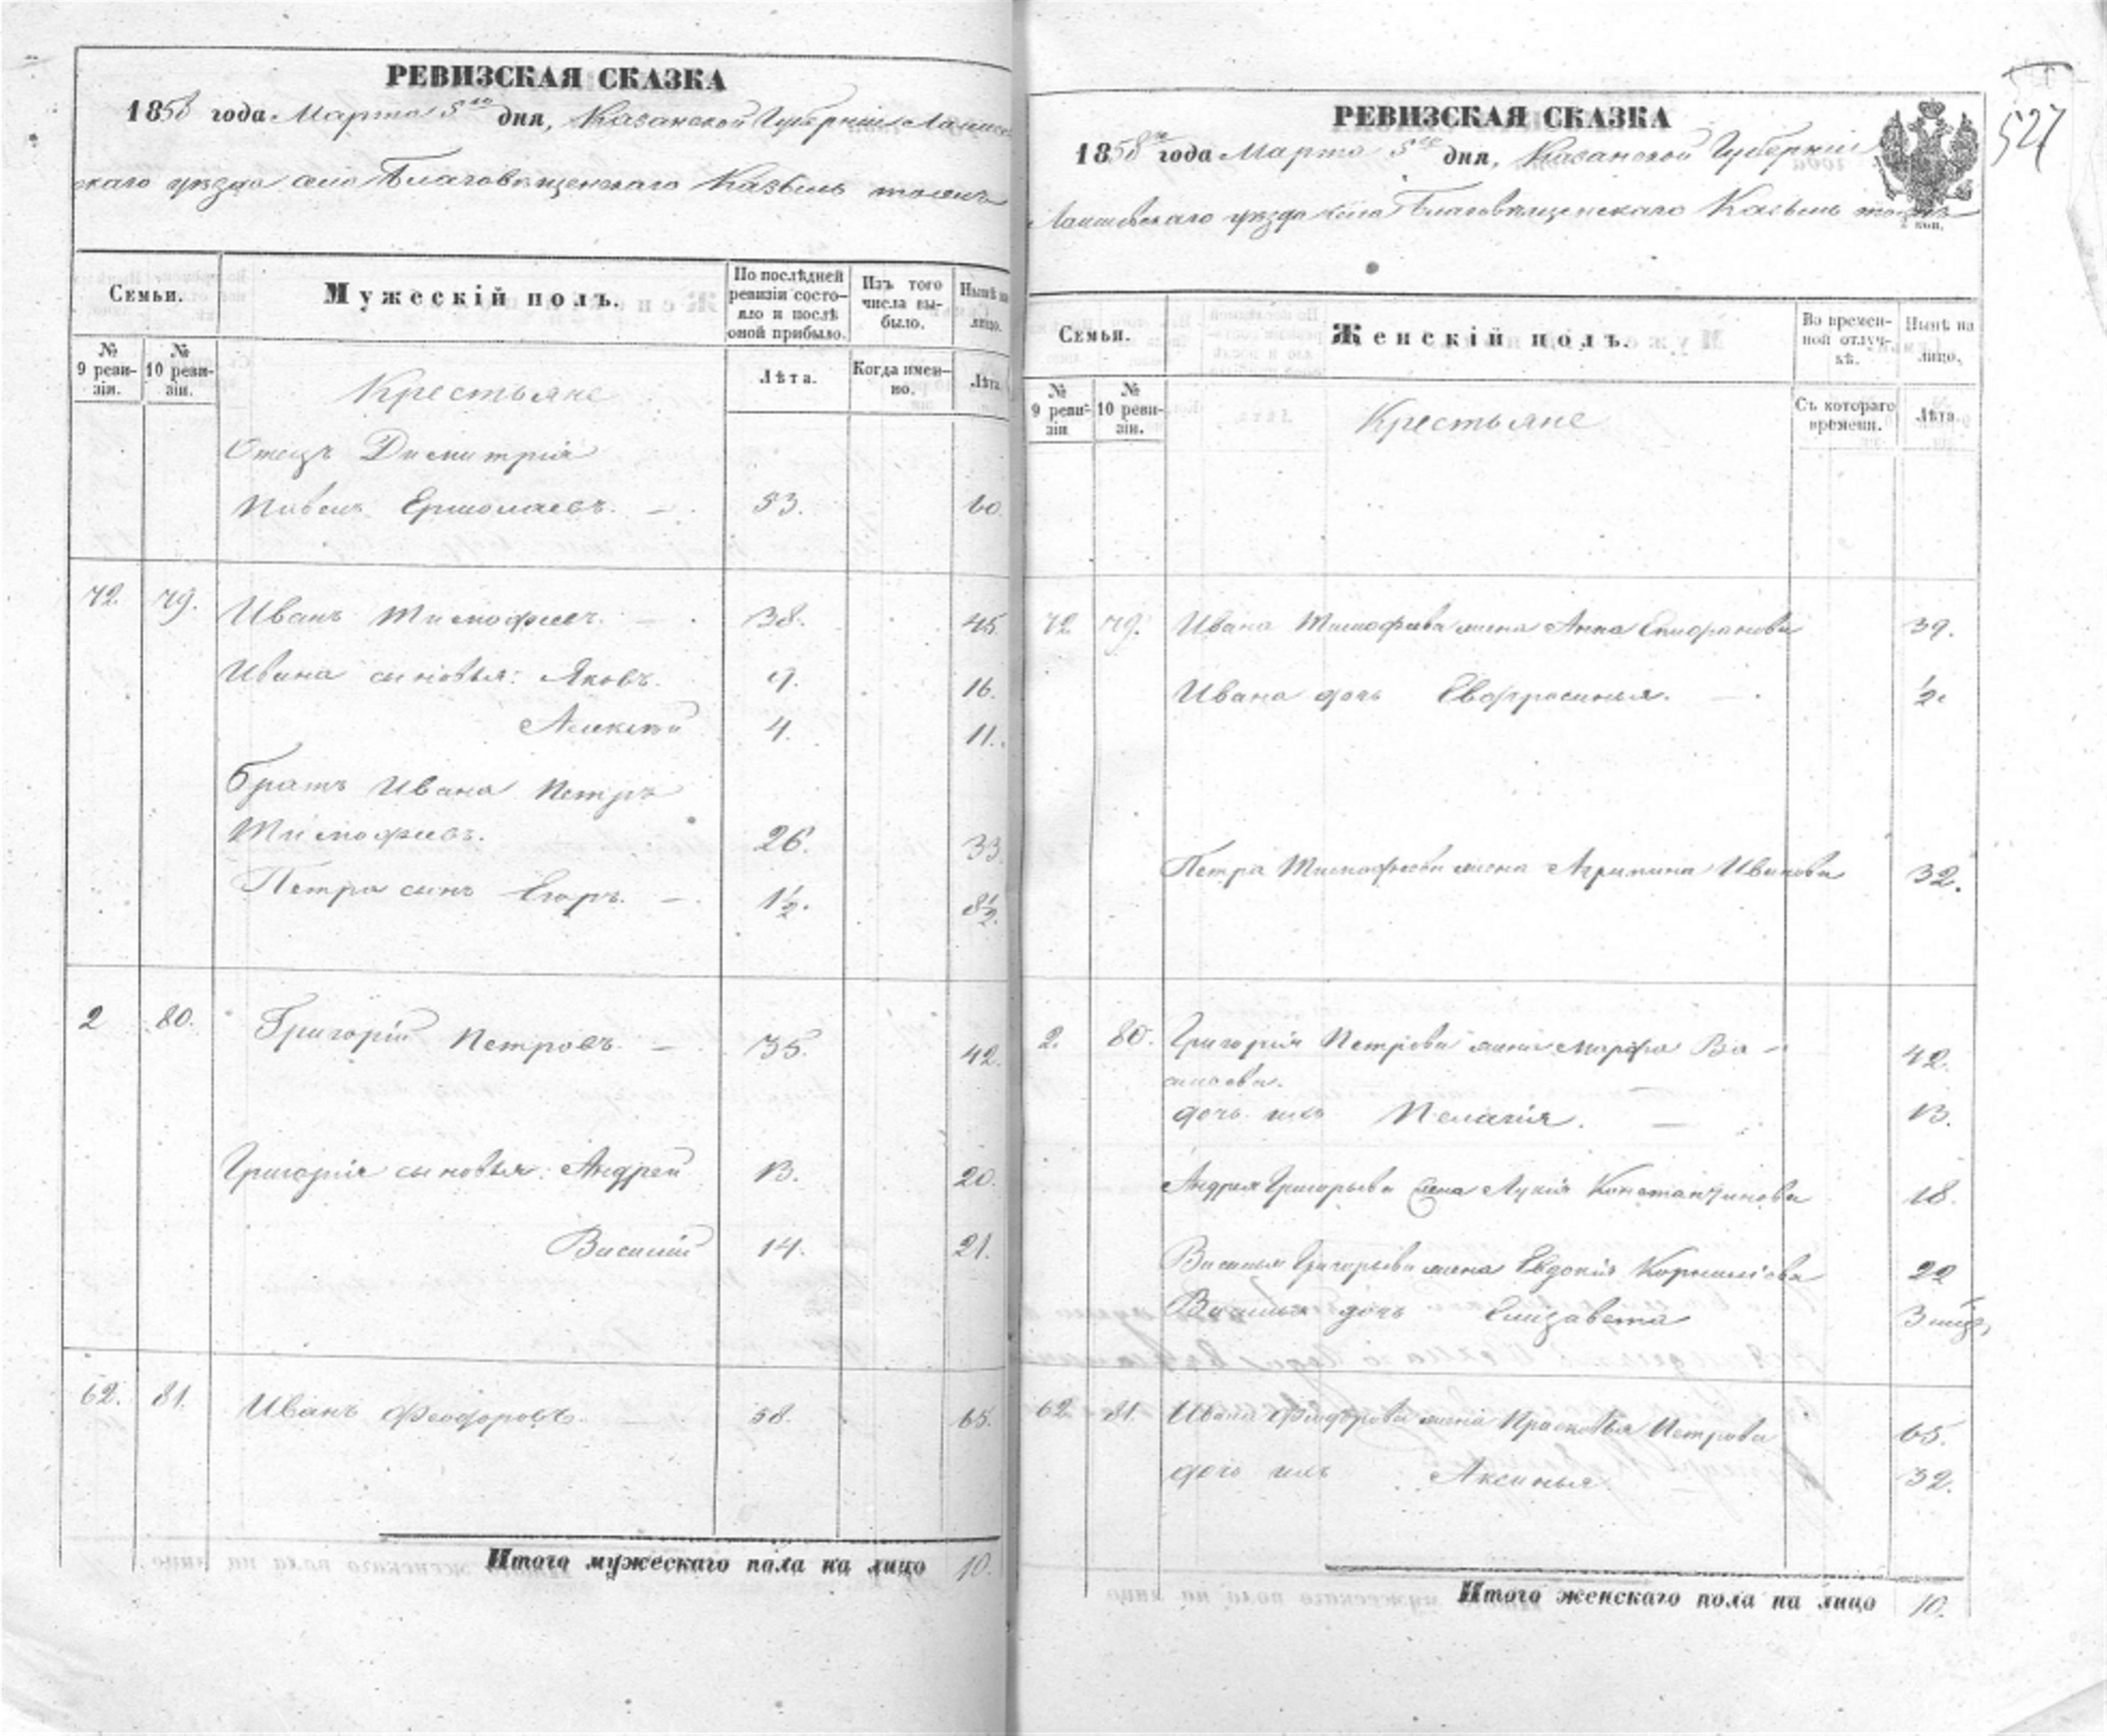 РЕВИЗСКАЯ СКАЗКА
1858 года Марта 5го дня, Казанской Губерніи Лаишев
скаго уѣзда села Благовѣщенскаго Казыль тожъ
Семьи.
Мужескій полъ.
По послѣдней ревизіи состояло и послѣ оной прибыло.
Изъ того числа выбыло.
Нынѣ на лицо.
№ 9 ревизіи.
№ 10 ревизіи.
Крестьяне
Лѣта.
Когда именно.
Лѣта.
Отецъ Димитрія
Павелъ Ермолаевъ. — 53. 60.
72. 79. Иванъ Тимофеевъ. — 38. 45.
Ивана сыновья: Яковъ. 9. 16.
Алексѣй 4. 11.
Братъ Ивана Петръ
Тимофеевъ. 26. 33.
Петра сынъ Егоръ. — 1½. 8½.
2 80. Григорій Петровъ. — 35. 42.
Григорія сыновья: Андрей 13. 20.
Василій 14. 21.
62. 81. Иванъ Феодоровъ. — 58. 65.
Итого мужескаго пола на лицо 10.
527
РЕВИЗСКАЯ СКАЗКА
1858го года Марта 5го дня, Казанской Губерніи
Лаишевскаго уѣзда села Благовѣщенскаго Казыль тожъ
коп.
Семьи.
Женскій полъ.
Во временной отлучкѣ.
Нынѣ на лицо.
№ 9 ревизіи
№ 10 ревизіи.
Крестьяне
Съ котораго времени.
Лѣта.
72 79. Ивана Тимофеева жена Анна 39.
Ивана дочь Евфросинья. — ½.
Петра Тимофеева жена Агрипина Иванова 32.
2. 80. Григорія Петрова жена Марфа Ва-
силова. 42.
дочь ихъ Пелагія. — 13.
Андрея Григорьева жена Лукія Константинова 18.
Василья Григорьева жена Евдокія Корнилова 22
Василья дочь Елизавета 3 мѣс.
62 81. Ивана Феодорова жена Прасковья Петрова 65.
дочь ихъ Аксинья. 32.
Итого женскаго пола на лицо 10.